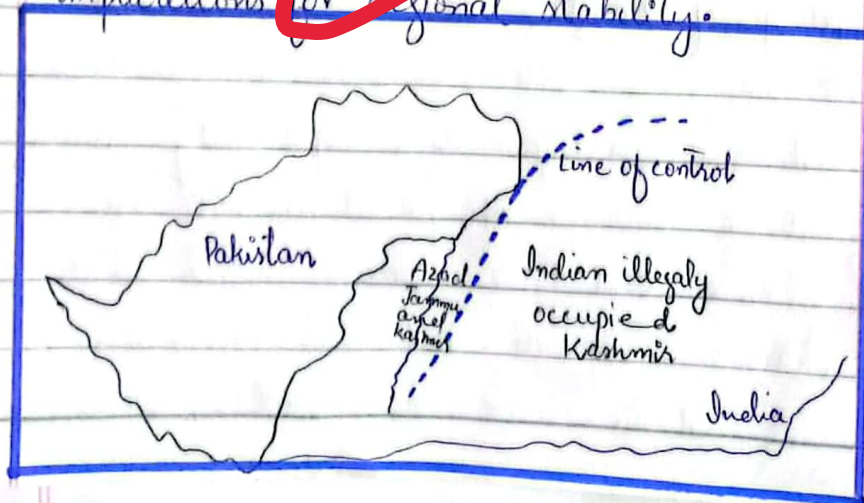 for regional stability.
Line of control
Pakistan
Azad
Jammu
and
Kashmir
Indian illegaly
occupied
Kashmir
India